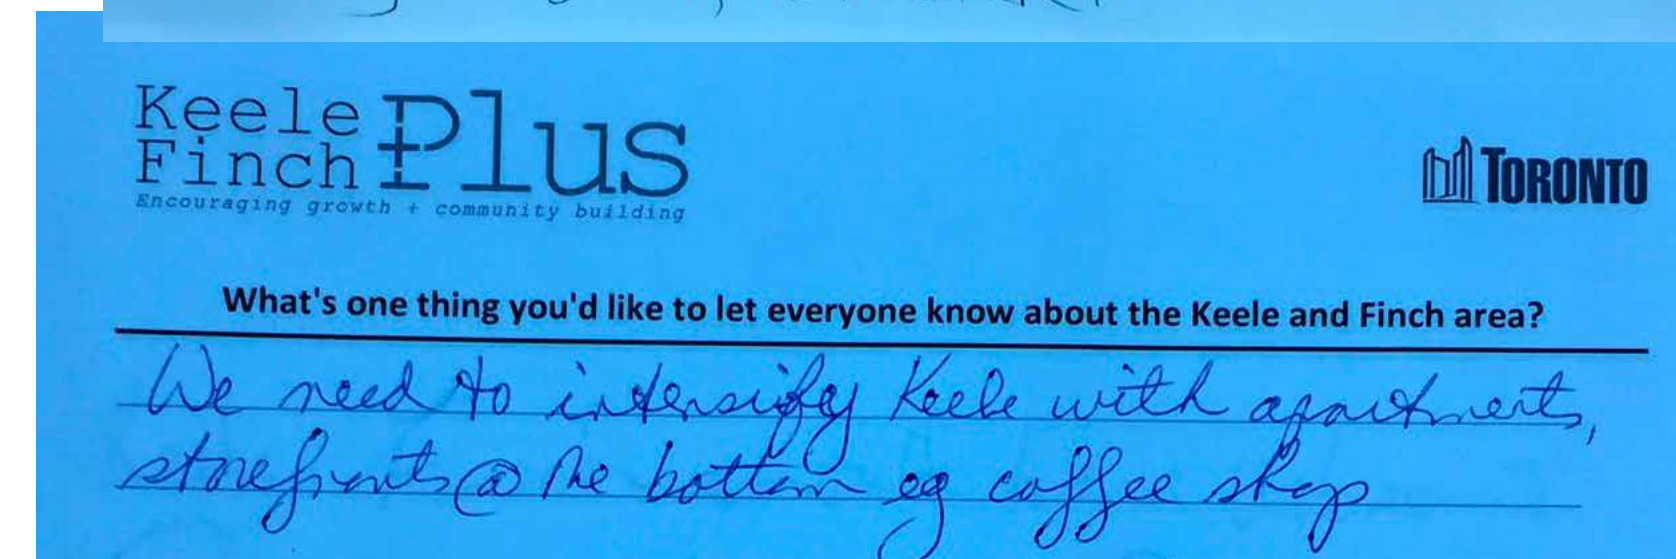 Keele
Finch
Plus
Encouraging growth + community building
TORONTO
What's one thing you'd like to let everyone know about the Keele and Finch area?
We need to intensify Keele with apartments,
storefronts @ the bottom eg coffee shop